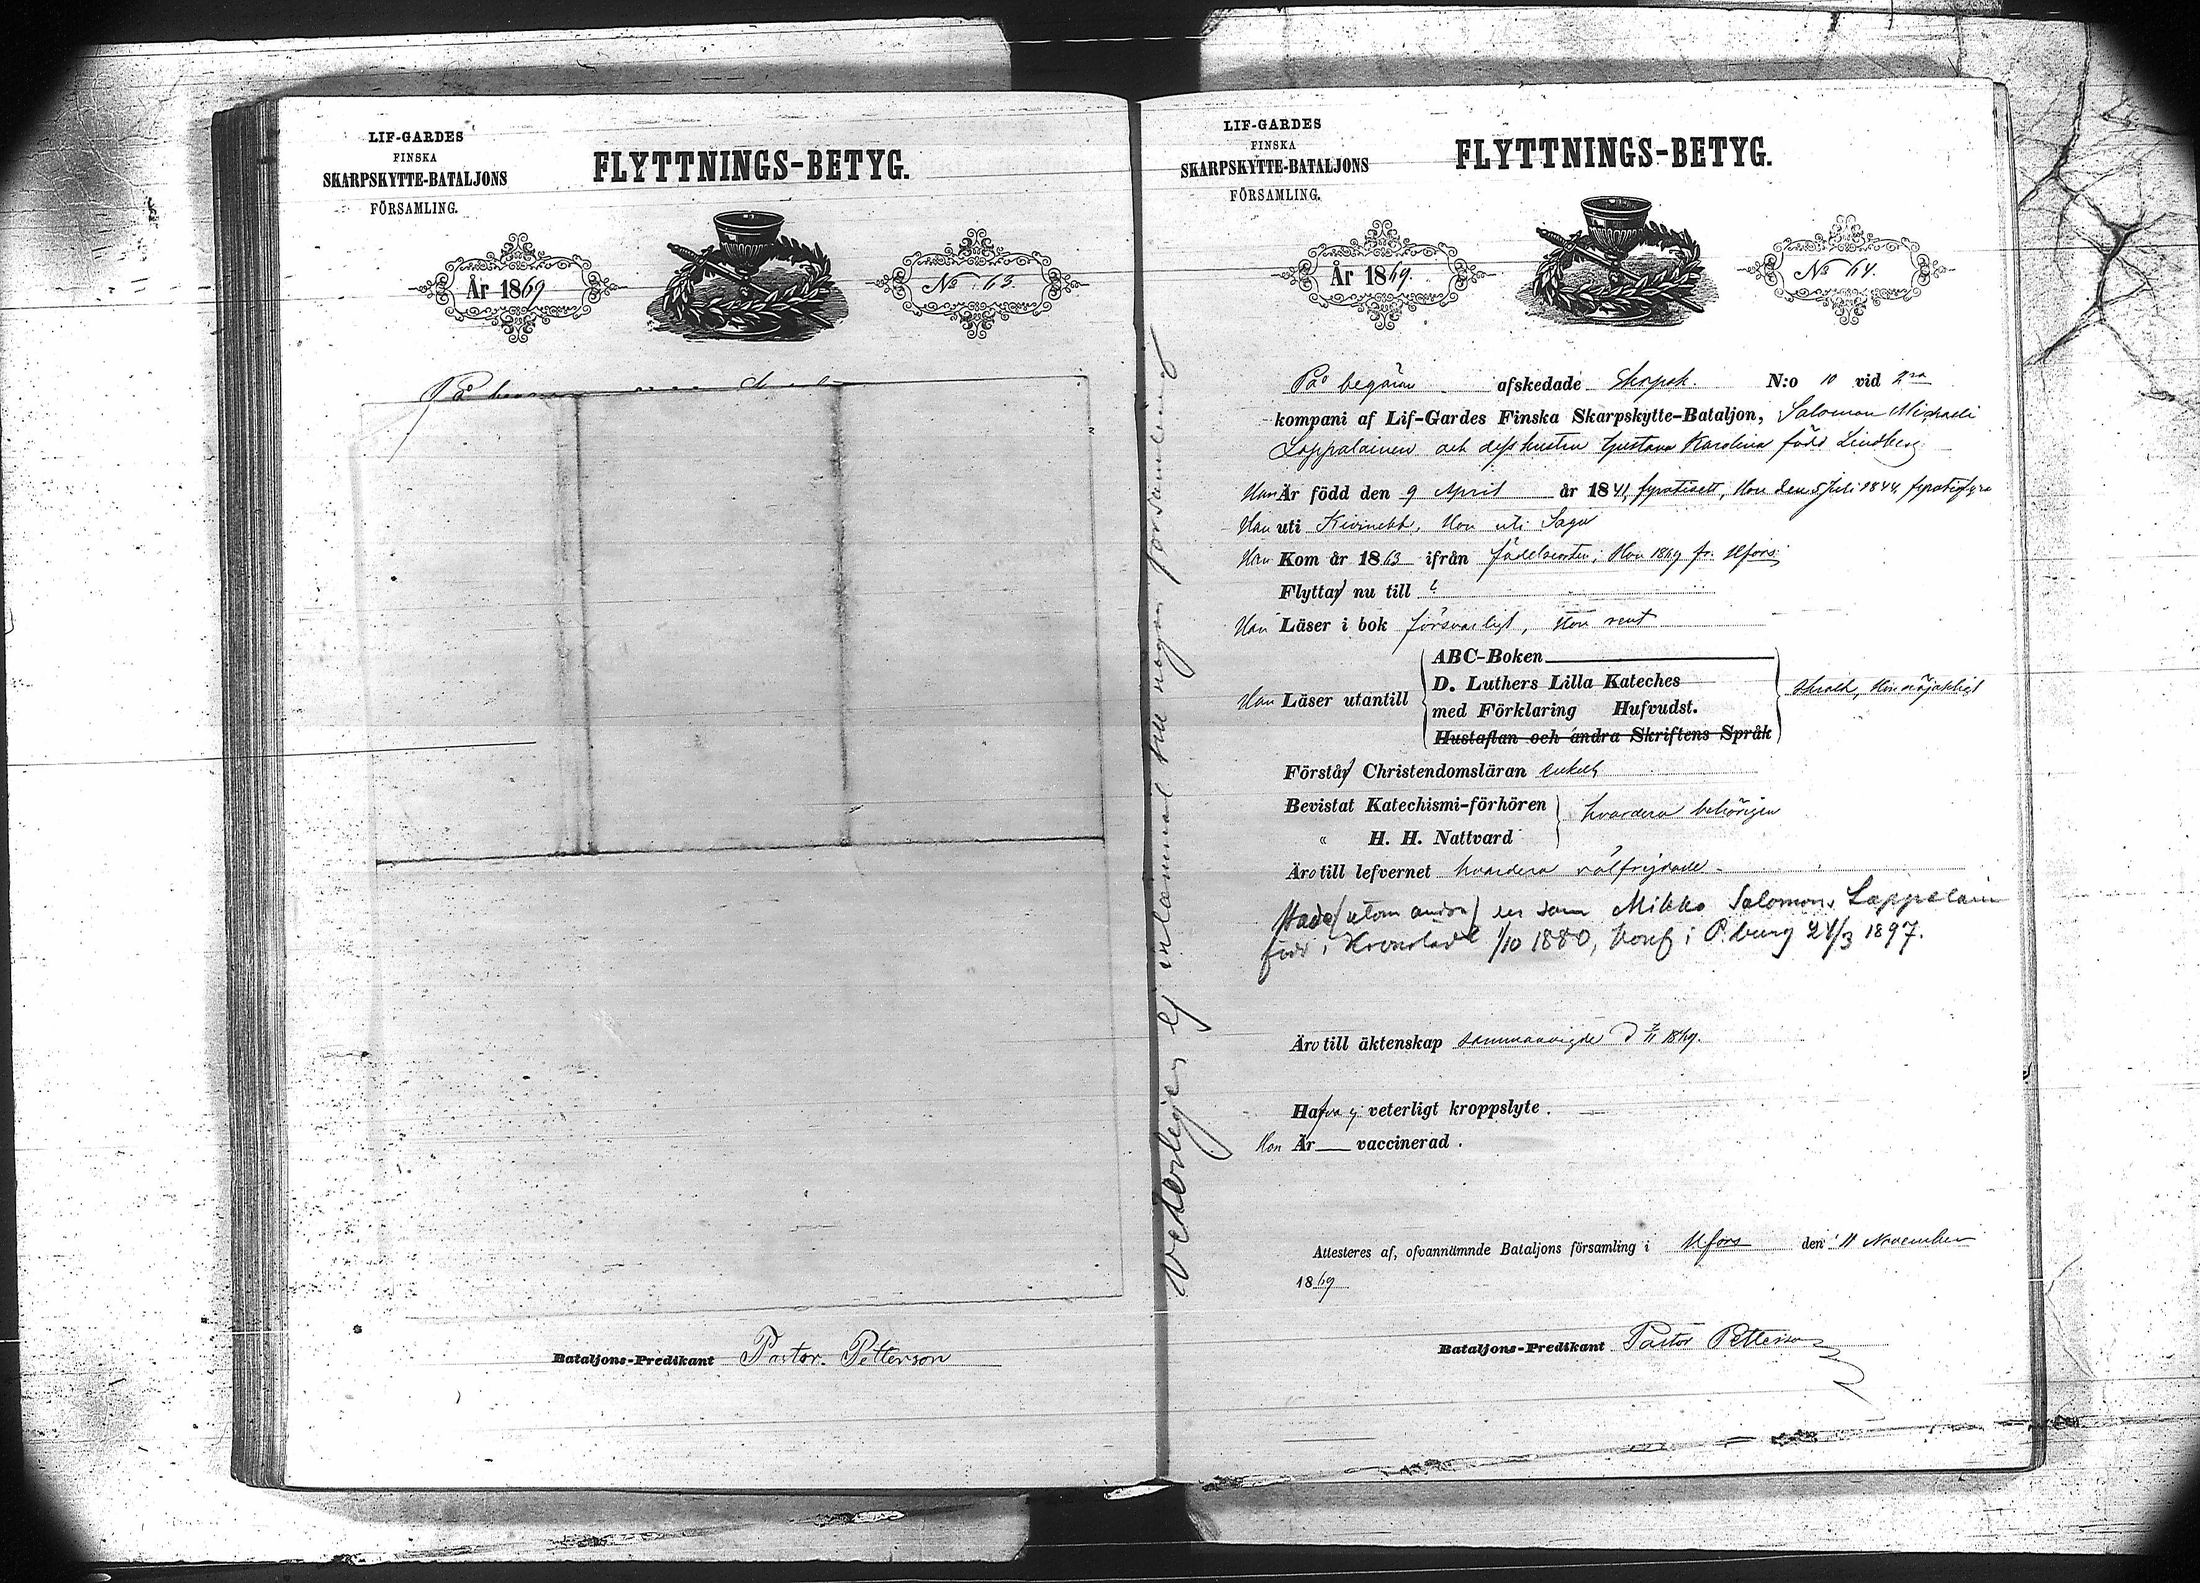 LIF-GARDES
FINSKA
SKARPSKYTTE-BATALJONS
FÖRSAMLING.
FLYTTNINGS-BETYG.
År 1869
No 63.
På
Bataljons-Predikant Pastor Petterson
Vederligen ej inlämnat till någon församling
LIF-GARDES
FINSKA
SKARPSKYTTE-BATALJONS
FÖRSAMLING.
FLYTTNINGS-BETYG.
År 1869.
No 64.
På begäran afskedade Skpsk. N:o 10 vid 2ra
kompani af Lif-Gardes Finska Skarpskytte-Bataljon, Salomon Michaeli
Lappalainen och dess hustru Gustava Karolina född Lindberg
Han Är född den 9 April år 1841, fyratioett, Hon den 5 Juli 1844, fyratiofyra
Han uti Kivinebb, Hon uti Sagu
Han Kom år 1863 ifrån födelseorten, Hon 1869 fr. Hfors
Flyttar nu till ?
Han Läser i bok försvarligt, Hon rent
Han Läser utantill
ABC-Boken
D. Luthers Lilla Kateches
med Förklaring Hufvudst.
Hustaflan och andra Skriftens Språk
svagt, Hon nöjaktigt
Förstår Christendomsläran enkelt
Bevistat Katechismi-förhören
" H. H. Nattvard
hvardera behörigen
Äro till lefvernet hvardera välfrejdade
Hade (utom andra) en son Mikko Salomons. Lappalain
född i Kronstadt 1/10 1880, konf i P.burg 24/3 1897.
Äro till äktenskap sammanvigde d 7/11 1869.
Hafva ej veterligt kroppslyte.
Hon Är vaccinerad.
Attesteres af, ofvannämnde Bataljons församling i Hfors den 11 November
1869
Bataljons-Predikant Pastor Petterson